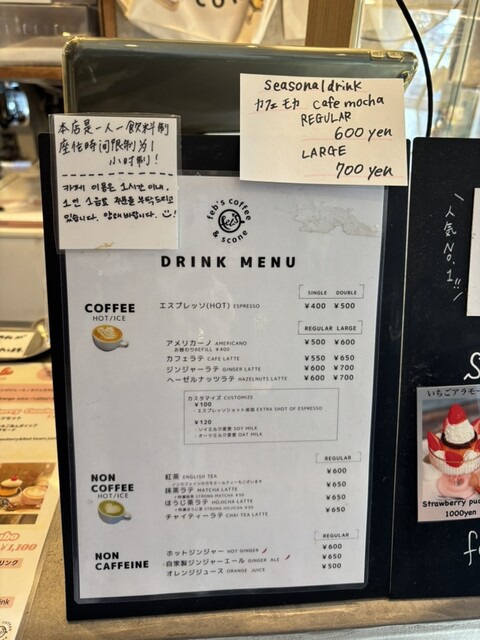 seasonal drink
カフェモカ Cafe mocha
REGULAR
600 yen
LARGE
700 yen
本店是一人一飲料制
座位時間限制為1
小时制!
카페 이용은 1시간 이내,
1인 1음료 주문을 부탁드리고
있습니다. 양해바랍니다.
feb's coffee
& scone
DRINK MENU
COFFEE
HOT/ICE
SINGLE DOUBLE
エスプレッソ(HOT) ESPRESSO ¥400 ¥500
REGULAR LARGE
アメリカーノ AMERICANO ¥500 ¥600
お替わりREFILL ¥400
カフェラテ CAFE LATTE ¥550 ¥650
ジンジャーラテ GINGER LATTE ¥600 ¥700
ヘーゼルナッツラテ HAZELNUTS LATTE ¥600 ¥700
カスタマイズ CUSTOMIZE
¥100
・エスプレッソショット追加 EXTRA SHOT OF ESPRESSO
¥120
・ソイミルク変更 SOY MILK
・オーツミルク変更 OAT MILK
NON
COFFEE
HOT/ICE
REGULAR
紅茶 ENGLISH TEA ¥600
抹茶ラテ MATCHA LATTE ¥650
STRONG MATCHA ¥50
ほうじ茶ラテ HOJICHA LATTE ¥650
STRONG HOJICHA ¥50
チャイティーラテ CHAI TEA LATTE ¥650
NON
CAFFEINE
REGULAR
ホットジンジャー HOT GINGER ¥600
自家製ジンジャーエール GINGER ALE ¥650
オレンジジュース ORANGE JUICE ¥500
人気NO.1!!
いちごアラモー
Strawberry pud
1000yen
¥1,100